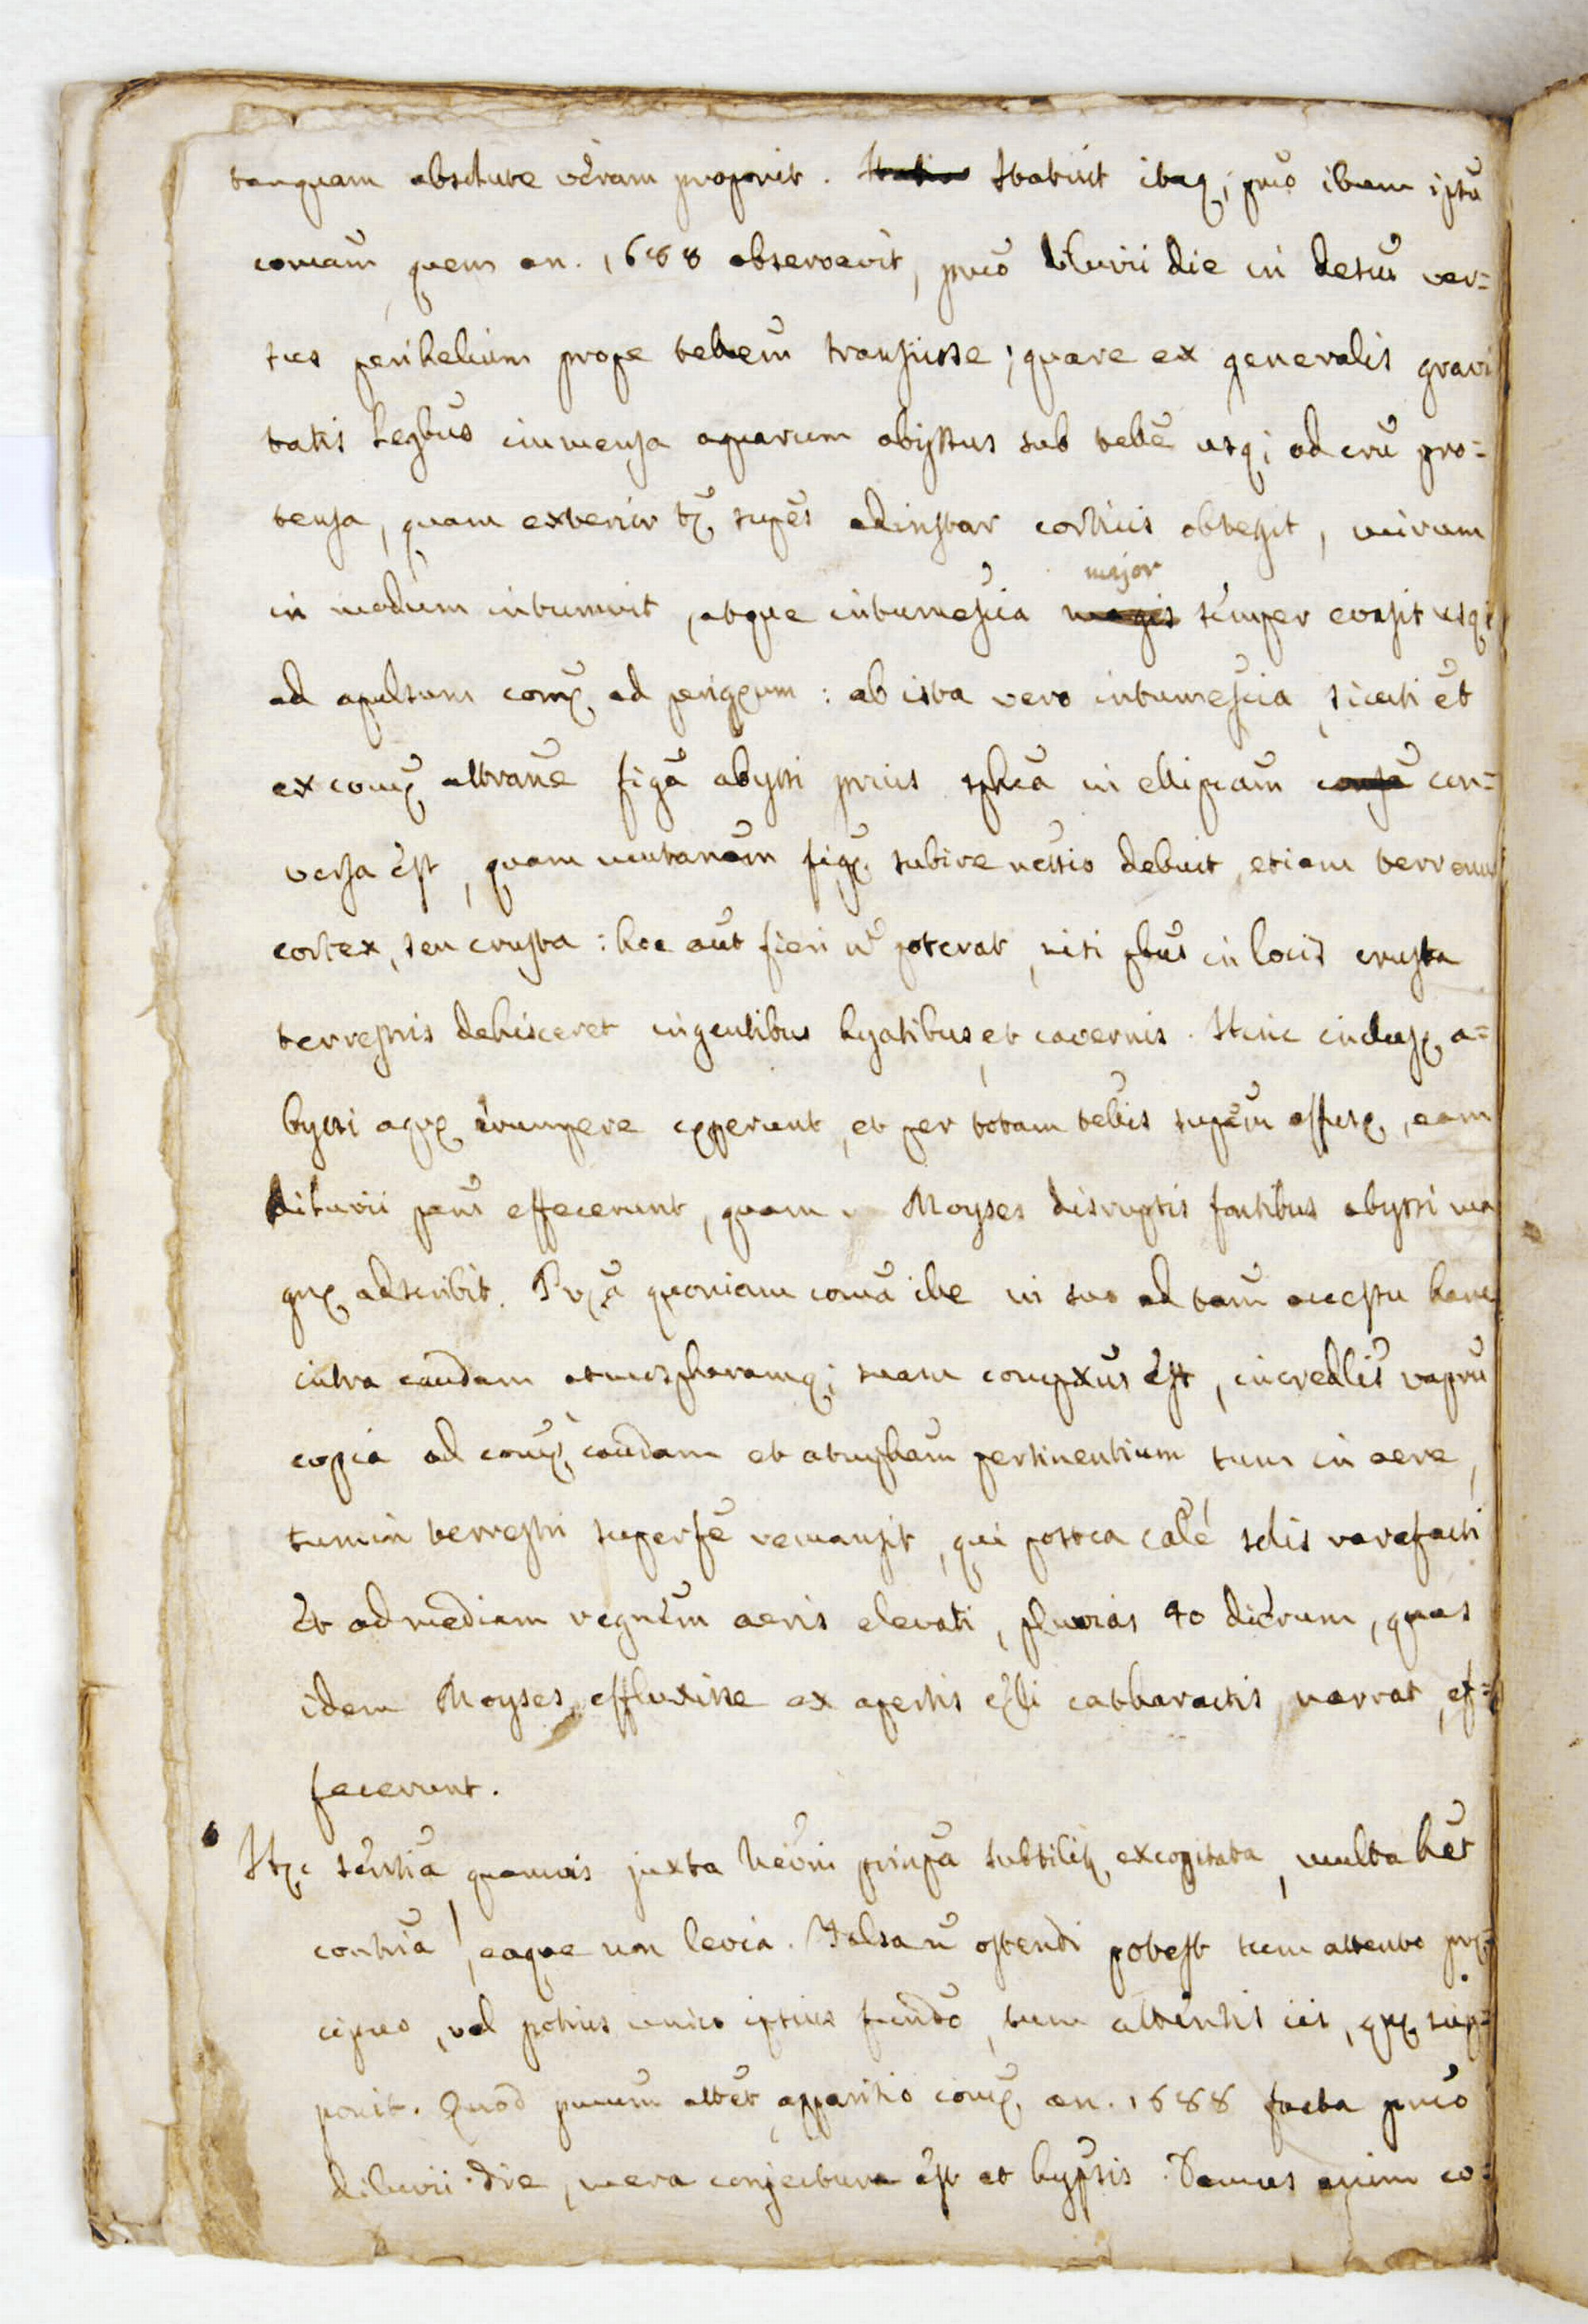 tanquam absolute veram proponit. Statuit itaq; pr̃o ibum ipsũ
comãm quem an. 1688 observavit, prĩo diluvii die in desũs ver=
sus perihelium prope tellem̃ transiisse; quare ex generalis gravi
tatis legbũs immensa aquarum abissus sub tellẽ usq; ad crũ pro=
tensa, quam exterior tæ supẽs adinstar corticis obtegit, mirum
in modum intumuit, atque intumescĩa major semper evasit usq;
ad apulsum comæ ad perigæum : ab ista vero intumescĩa sicuti et̃
ex comæ attranẽ figã abyssi prius sphcã in ellipcãm con=
versa est̃, quam mutanẽm figæ subire neccssĩo debuit, etiam terrenus
cortex, seu crusta : hoc aut̃ fieri ñ poterat, nisi pbũs in locis crusta
terrestris dehisceret ingentibus hyatibus et cavernis. Hinc inclusæ a=
byssi aquæ erumpere cæperunt, et per totam tellĩs supẽm effusæ, eam
diluvii parm̃ effecerunt, quam Moyses disruptis fontibus abyssi ma
gnæ adscribit. Præã quoniam comã ille in suo ad tam̃ accessu hanc
intra caudam atmospheramq; suam complxũs est̃, incredlĩs vaprũ
copia ad comæ caudam et atmsphãm pertinentium tum in aere,
tum in terrestri superfẽ remansit, qui postea calẽ solis rarefacti
et ad mediam regnẽm aeris elevati, pluvias 40 dierum, quas
idem Moyses effluxisse ex apertis cæli catharactis narrat, ef=
fecerunt.
Hæc sentĩa quamvis juxta Neõni prinpã subtilĩr excogitata, multa het̃
contrĩa, eaque non levia. Falsa ñ ostendi potest tum attento præ=
cipuo, vel potius unico ipsius fundõ, tum attentis iis, quæ sup=
ponit. Quod primũm attet̃, apparitio comæ an. 1688 facta prĩo
diluvii die, mera conjectura est̃ et hypsĩs. Demus enim co=